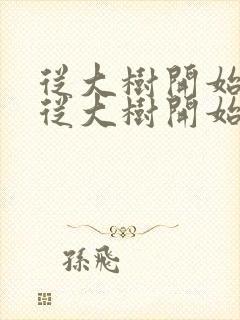 從大樹開始
從大樹開始
孫飛